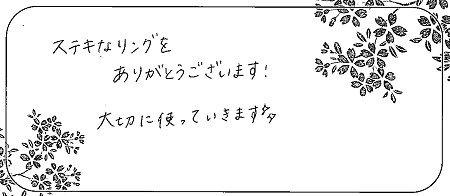 ステキなリングを
ありがとうございます!
大切に使っていきます